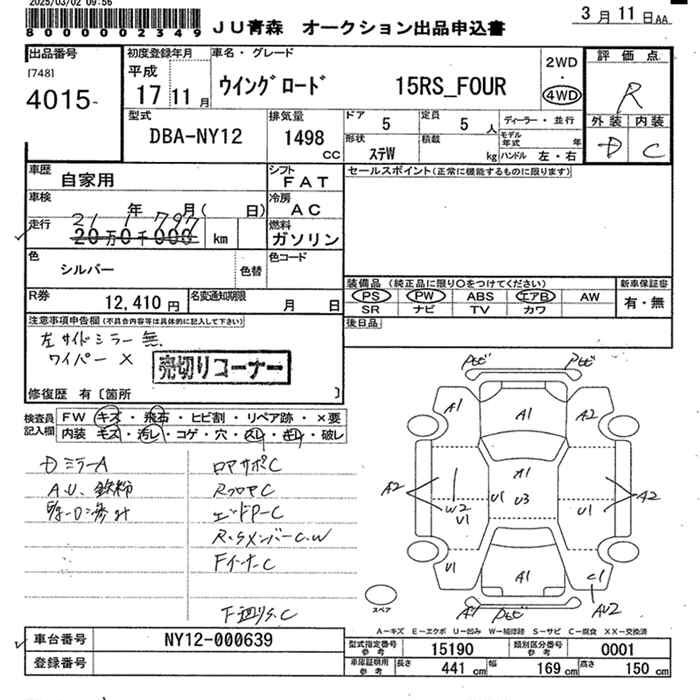 2025/03/02 09:56
8000002349
JU青森 オークション出品申込書
3月11日AA
出品番号
[748]
4015-
初度登録年月
平成
17 11月
車名・グレード
ウイングロード 15RS_FOUR
2WD
・
4WD
評価点
R
外装 内装
D C
型式
DBA-NY12
排気量
1498
CC
ドア
5
定員
5 人
ディーラー・並行
モデル年式 年
形状
ステW
積載
kg
ハンドル 左・右
車歴
自家用
シフト
FAT
セールスポイント(正常に機能するものに限ります)
車検
年 月( 日)
冷房
AC
走行
21 1 797
20万0千000 km
燃料
ガソリン
色
シルバー
色替
色コード
装備品 (純正品に限り○をつけてください)
新車保証書
PS PW ABS エアB AW
有・無
SR ナビ TV カワ
R券
12,410 円
名変通知期限
月 日
後日品
注意事項申告欄(不具合内容等は具体的に記入して下さい)
左サイドミラー 無.
ワイパー ×
売切りコーナー
修復歴 有〔箇所 〕
検査員記入欄
FW キズ・飛石・ヒビ割・リペア跡・×要
内装 モス・汚レ・コゲ・穴・スレ・キレ・破レ
DミラーA
A.U、鉄粉
ロアサポC
RフロアC
エンドP-C
R.SメンバーC.W
FインナーC
下廻りS.C
A1
A1
A2
A1
A2
W2
U1
U1
U3
U1
A2
U1
A1
C1
A1
AU2
スペア
A-キズ E-エクボ U-凹み W-補修跡 S-サビ C-腐食 XX-交換済
車台番号
NY12-000639
登録番号
型式指定番号
参考
15190
類別区分番号
参考
0001
車庫証明用
参考
長さ
441 cm
幅
169 cm
高さ
150 cm